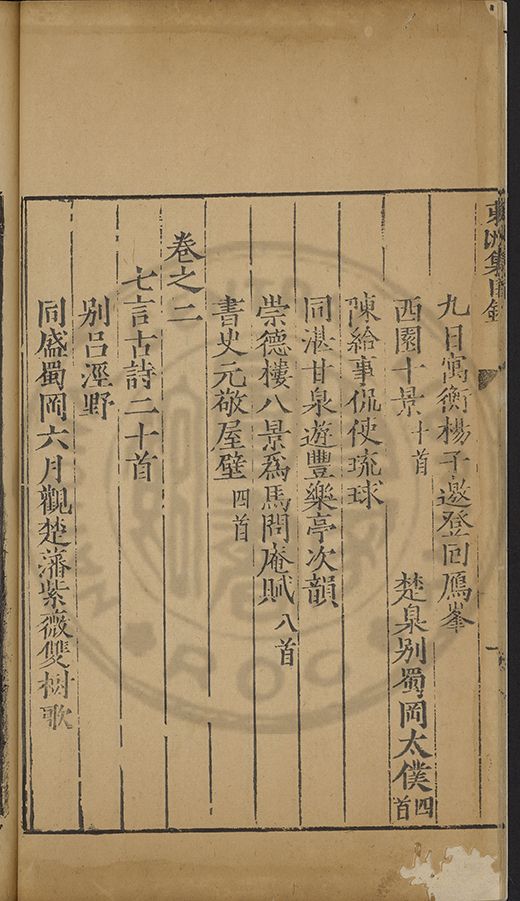 東洲集目錄
九日寓衡楊子邀登回鴈峯
西園十景十首 楚臬别蜀岡太僕四首
陳給事侃使琉球
同湛甘泉遊豐樂亭次韻
崇德樓八景爲馬問庵賦八首
書史元敬屋壁四首
卷之二
七言古詩二十首
别呂涇野
同盛蜀岡六月觀楚藩紫薇雙樹歌